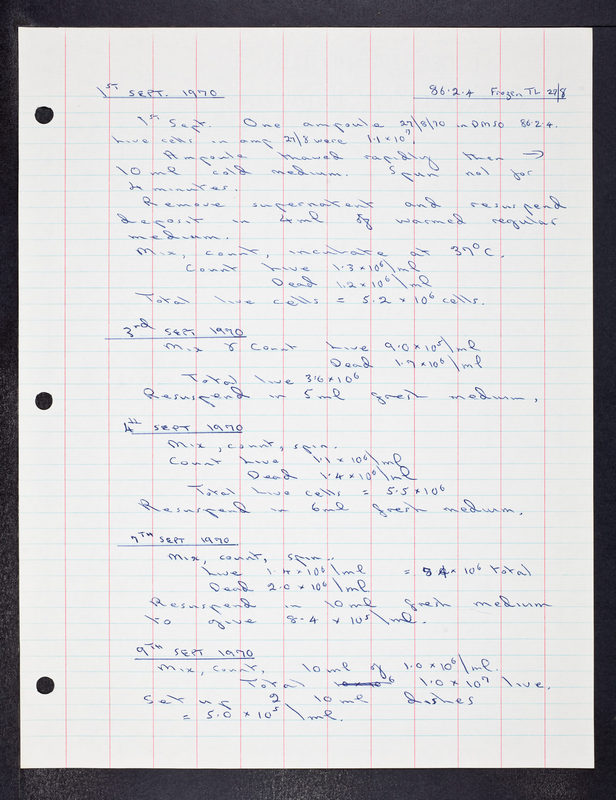 1ST SEPT. 1970
86.2.4 Frozen TL 27/8
1st Sept. One ampoule 27/8/70 in DMSO 86.2.4.
Live cells in amp 27/8 were 1.1 x 10⁷.
Ampoule thawed rapidly then →
10 ml cold medium. Spun not for
4 minutes.
Remove supernatent and resuspend
deposit in 4ml of warmed regular
medium.
Mix, count, incubate at 37°C.
Count Live 1.3 x 10⁶/ml
Dead 1.2 x 10⁶/ml
Total live cells = 5.2 x 10⁶ cells.
3rd SEPT 1970
Mix & Count Live 9.0 x 10⁵/ml
Dead 1.7 x 10⁶/ml
Total live 3.6 x 10⁶
Resuspend in 5ml fresh medium.
4th SEPT 1970
Mix, count, spin.
Count Live 1.1 x 10⁶/ml
Dead 1.4 x 10⁶/ml
Total Live cells = 5.5 x 10⁶
Resuspend in 6ml fresh medium.
7TH SEPT 1970
Mix, count, spin..
Live 1.4 x 10⁶/ml = 84 x 10⁶ total
Dead 2.0 x 10⁶/ml
Resuspend in 10ml fresh medium
to give 8.4 x 10⁵/ml.
9TH SEPT 1970
Mix, count, 10ml of 1.0 x 10⁶/ml.
Total 1.0 x 10⁷ live.
Set up 2 10ml dishes
= 5.0 x 10⁵/ml.